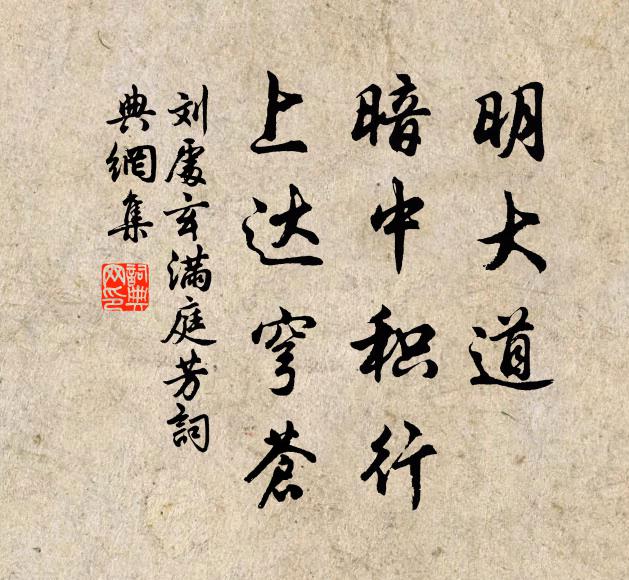 明大道
暗中积行
上达穹苍
刘處玄满庭芳詞
典網集
詞典
网印